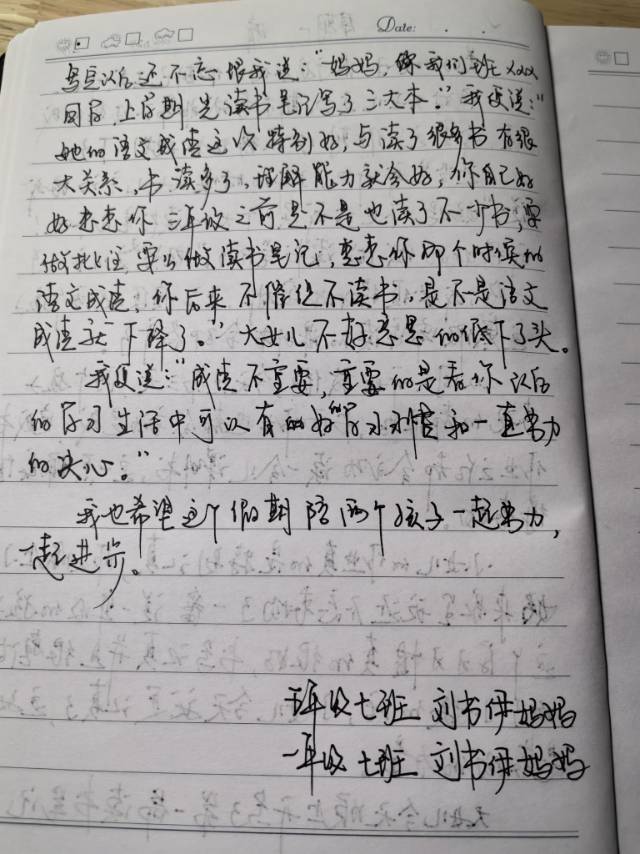 Date:
写完以后还不忘跟我说："妈妈，你我们班xxx
同学上学期光读书笔记写了三大本。"我便说："
她的语文成绩这次特别好，与读了很多书有很
大关系，书读多了，理解能力就会好，你自己好
好想想你三年级之前是不是也读了不少书，要
做批注要么做读书笔记，想想你那个时候的
语文成绩，你后来不催促不读书，是不是语文
成绩就下降了。"大女儿不好意思的低下了头。
我便说："成绩不重要，重要的是看你以后
的学习生活中可以有的好的学习习惯和一直努力
的决心。"
我也希望这个假期陪两个孩子一起努力，
一起进步。
年级七班 刘书伊妈妈
一年级七班 刘书伊妈妈